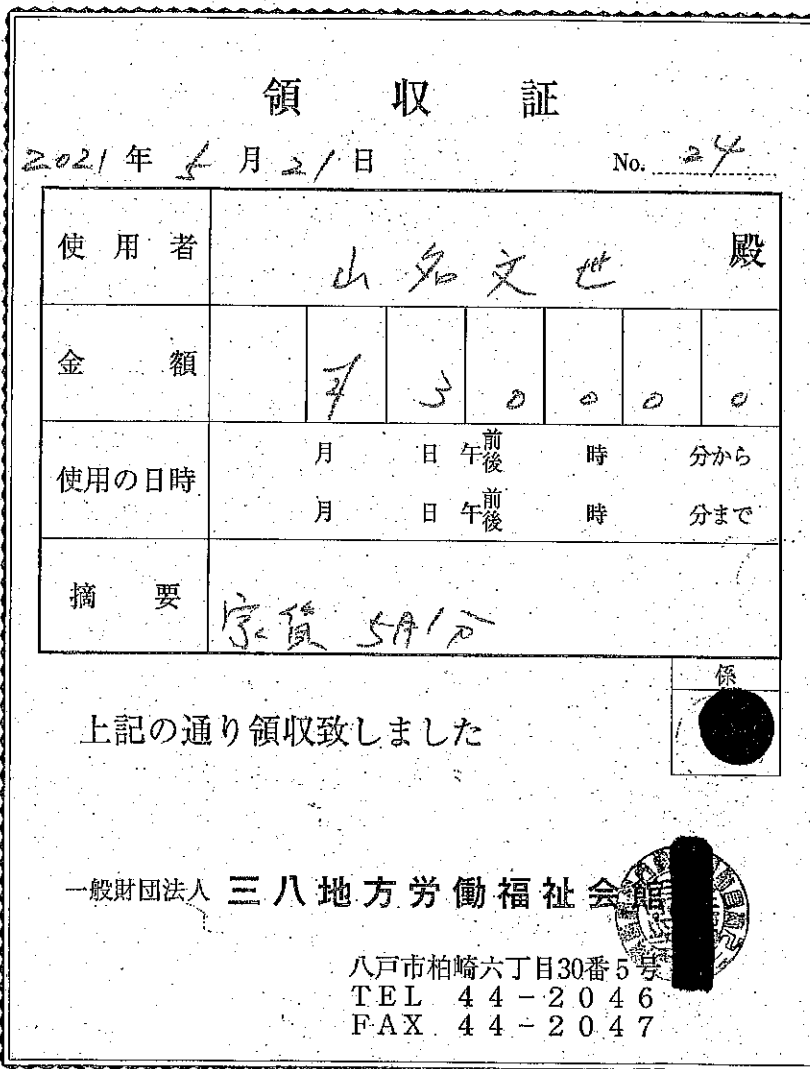 領収証
2021年5月21日 No. 24
使用者 山名文世 殿
金額 ¥30000
使用の日時 月 日 午前後 時 分から
月 日 午前後 時 分まで
摘要 家賃 5月分
係
上記の通り領収致しました
一般財団法人 三八地方労働福祉会館
八戸市柏崎六丁目30番5号
TEL 44-2046
FAX 44-2047